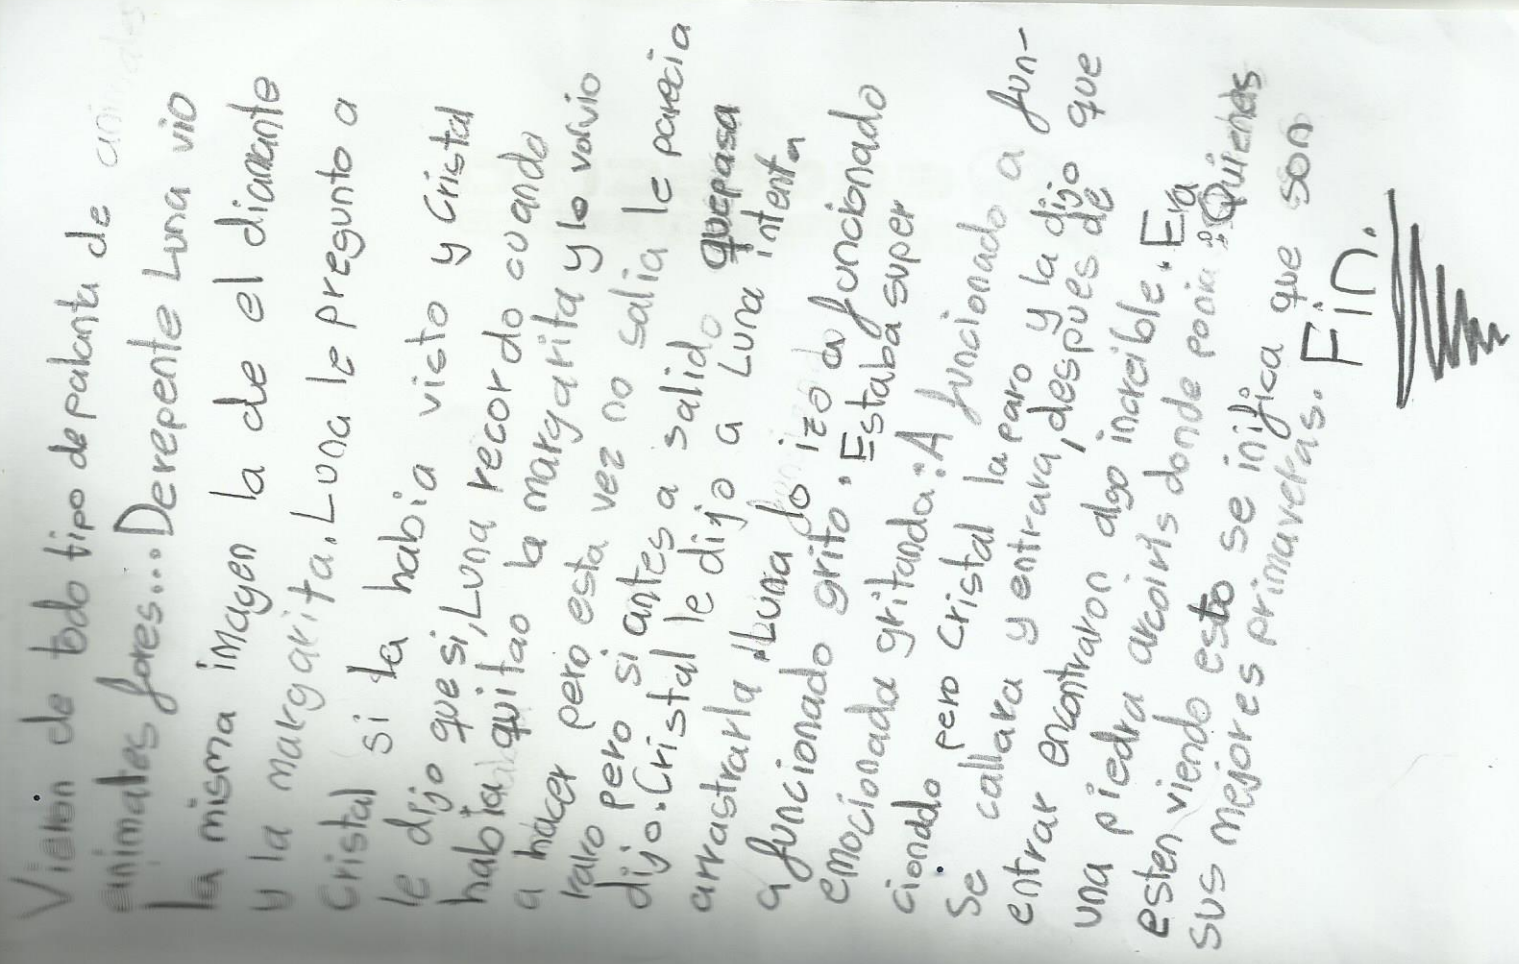 Vieron de todo tipo de palanta de
animales fores... Derepente Luna vio
la misma imagen la de el diamante
y la margarita. Luna le pregunto a
Cristal si la habia visto y Cristal
le dijo que si, Luna recordo cuando
habia quitao la margarita y lo volvio
a hacer pero esta vez no salia le parecia
raro pero si antes a salido quepasa
dijo. Cristal le dijo a Luna intenta
arrastrarla. Luna lo izo a funcionado
a funcionado grito. Estaba super
emocionada gritanda: A funcionado a fun-
cionado pero Cristal la paro y la dijo que
se callara y entrara, después de
entrar encontraron algo increible. Era
una piedra arcoiris donde ponia: Quienes
esten viendo esto se inifica que son
sus mejores primaveras. Fin.